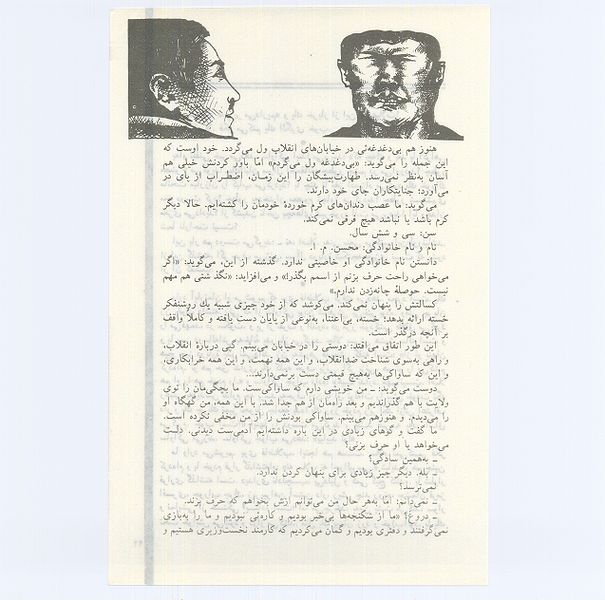 هنوز هم بی‌دغدغه‌ئی در خیابان‌های انقلاب ول می‌گردد. خود اوست که
این جمله را می‌گوید: «بی‌دغدغه ول می‌گردم» اما باور کردنش خیلی هم
آسان به‌نظر نمی‌رسد. طهارت‌پیشگان را این زمـان، اضطـراب از پای در
می‌آورد: جنایتکاران جای خود دارند.
می‌گوید: ما عصب دندان‌های کرم خوردهٔ خودمان را کشته‌ایم. حالا دیگر
کرم باشد یا نباشد هیچ فرقی نمی‌کند.
سن: سی و شش سال.
نام و نام خانوادگی: محسن. م. ا.
دانستن نام خانوادگی او خاصیتی ندارد. گذشته از این، می‌گوید: «اگر
می‌خواهی راحت حرف بزنم از اسمم بگذر!» و می‌افزاید: «نگذشتی هم مهم
نیست. حوصلهٔ چانه‌زدن ندارم.»
کسالتش را پنهان نمی‌کند. می‌کوشد که از خود چیزی شبیه یك روشنفکر
خسته ارائه بدهد: خسته، بی‌اعتنا، به‌نوعی از پایان دست یافته و کاملاً واقف
بر آنچه درگذر است.
این طور اتفاق می‌افتد: دوستی را در خیابان می‌بینم. گپی دربارهٔ انقلاب،
و راهی به‌سوی شناخت ضدانقلاب، و این همه تهمت، و این همه خرابکاری،
و این که ساواکی‌ها به‌هیچ قیمتی دست برنمی‌دارند...
دوست می‌گوید: ــ من خویشی دارم که ساواکی‌ست. ما بچگی‌مان را توی
ولایت با هم گذراندیم و بعد راه‌مان از هم جدا شد. با این همه، من گهگاه او
را می‌دیدم. و هنوزهم می‌بینم. ساواکی بودنش را از من مخفی نکرده است.
ما گفت و گوهای زیادی در این باره داشته‌ایم آدمی‌ست دیدنی. دلت
می‌خواهد با او حرف بزنی؟
ــ به‌همین سادگی؟
ــ بله. دیگر چیز زیادی برای پنهان کردن ندارد.
ــ نمی‌ترسد؟
ــ نمی‌دانم؛ اما به‌هر حال من می‌توانم ازش بخواهم که حرف بزند.
ــ دروغ؟ «ما از شکنجه‌ها بی‌خبر بودیم و کاره‌ئی نبودیم و ما را به‌بازی
نمی‌گرفتند و دفتری بودیم و گمان می‌کردیم که کارمند نخست‌وزیری هستیم و